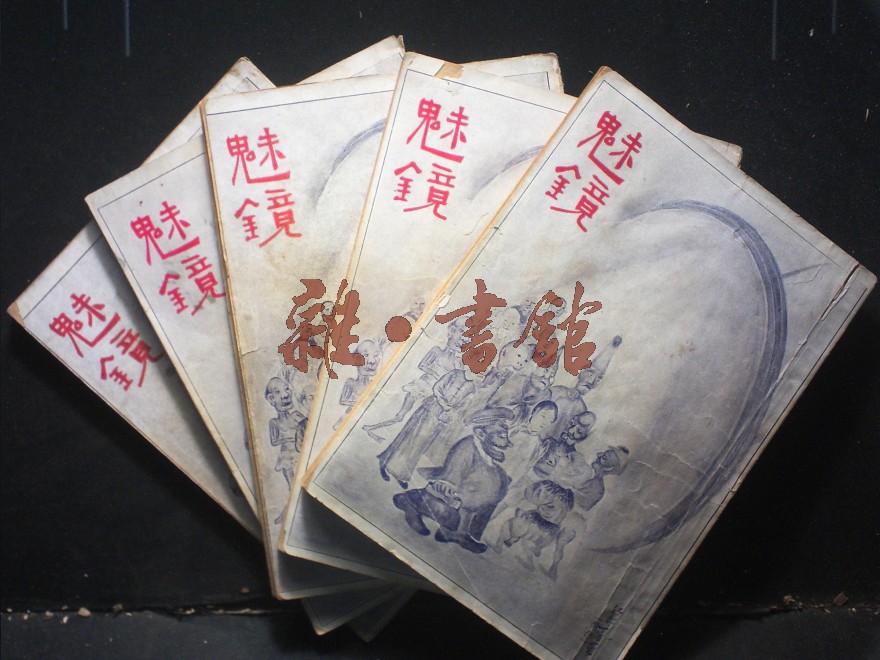 魅
鏡
魅
鏡
魅
鏡
魅
鏡
魅
鏡
雜·書館